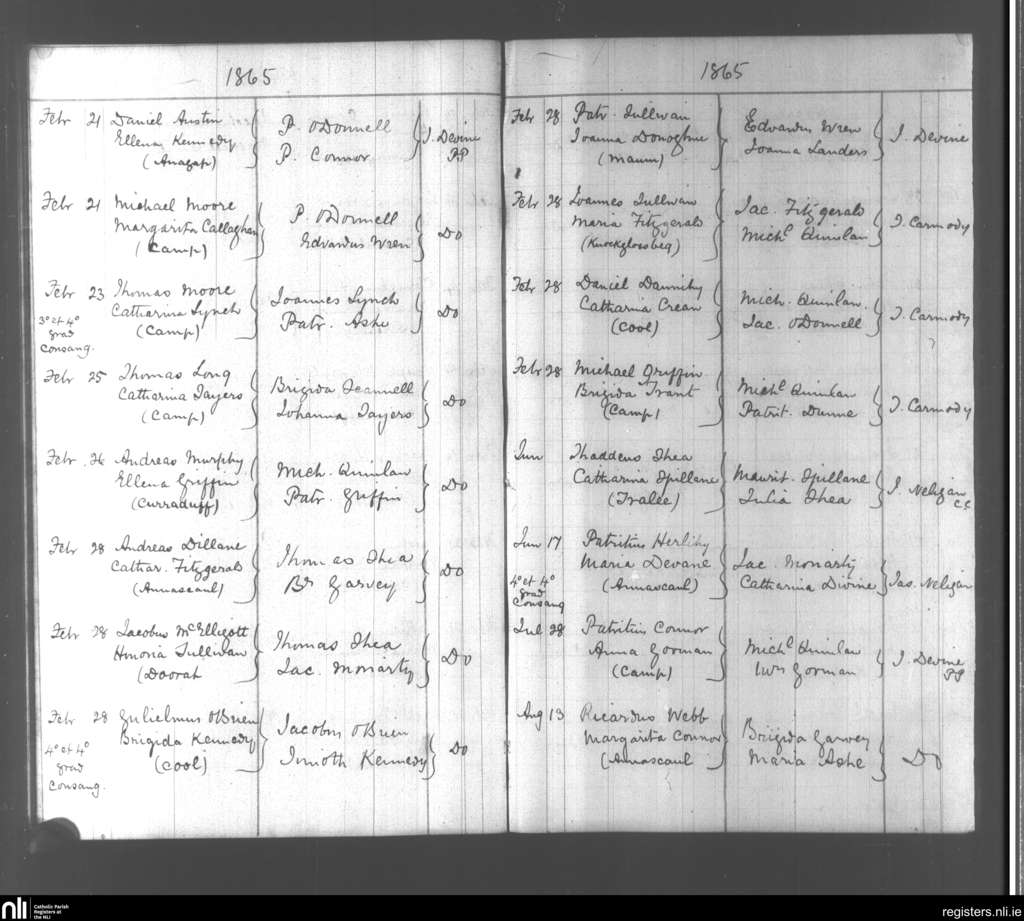 1865
Febr 21 Daniel Austin
Ellena Kennedy
(Anagap)
P. ODonnell
P. Connor
J. Devine
PP
Febr 21 Michael Moore
Margarita Callaghan
(Camp)
P. ODonnell
Edvardus Wren
Do
Febr 23 Thomas Moore
Catharina Lynch
(Camp)
3° et 4°
grad
Consang.
Joannes Lynch
Patr. Ashe
Do
Febr 25 Thomas Long
Catharina Sayers
(Camp)
Brigida Scannell
Johanna Sayers
Do
Febr 26 Andreas Murphy
Ellena Griffin
(Curraduff)
Mich. Quinlan
Patr. Griffin
Do
Febr 28 Andreas Dillane
Cathar. Fitzgerald
(Annascaul)
Thomas Shea
Br Garvey
Do
Febr 28 Jacobus McElligott
Honoria Sullivan
(Doorah
Thomas Shea
Jac. Moriarty
Do
Febr 28 Gulielmus OBrien
Brigida Kennedy
(Cool)
4° et 4°
grad
Consang.
Jacobus OBrien
Timoth Kennedy
Do
1865
Febr 28 Patr. Sullivan
Joanna Donoghue
(Maum)
Edvardus Wren
Joanna Landers
J. Devine
Febr 28 Joannes Sullivan
Maria Fitzgerald
(Knockglossbeg)
Jac. Fitzgerald
Michl Quinlan
J. Carmody
Febr 28 Daniel Dannihy
Catharina Crean
(Cool)
Mich. Quinlan.
Jac. ODonnell
J. Carmody
Febr 28 Michael Griffin
Brigida Trant
(Camp)
Michl Quinlan
Patrit. Dunne
J. Carmody
Jun Thaddeus Shea
Catharina Spillane
(Tralee)
Maurit. Spillane
Julia Shea
J. Neligan
C.C.
Jun 17 Patritius Herlihy
Maria Devane
(Annascaul)
4° et 4°
grad
Consang
Jac. Moriarty
Catharina Divine
Jas. Neligan
Jul 28 Patritius Connor
Anna Gorman
(Camp)
Michl Quinlan
Wm Gorman
J. Devine
PP
Aug 13 Ricardus Webb
Margarita Connor
(Annascaul
Brigida Garvey
Maria Ashe
Do
nli Catholic Parish
Registers at
the NLI
registers.nli.ie